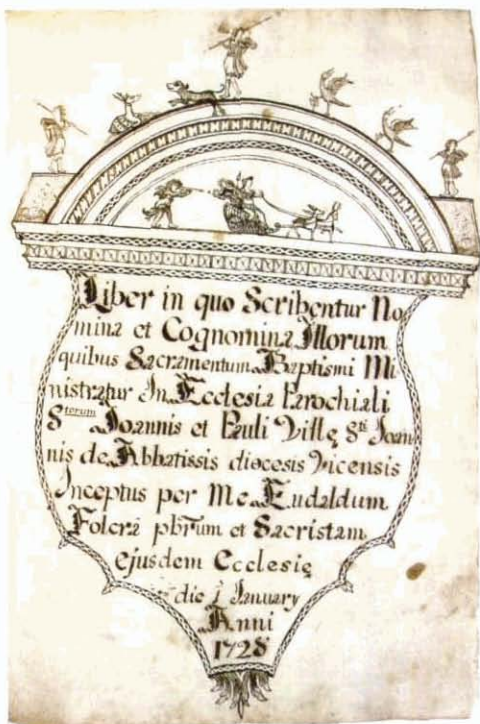 Liber in quo Scribentur No
mina et Cognomina Illorum
quibus Sacramentum Baptismi Mi
nistratur In Ecclesia Parochiali
Storum Joannis et Pauli Villę Sti Joan
nis de Abbatissis diocesis Vicensis
Inceptus per Me Eudaldum
Folcrá pbrum et Sacristam
ejusdem Ecclesię
die 1 January
Anni
1728